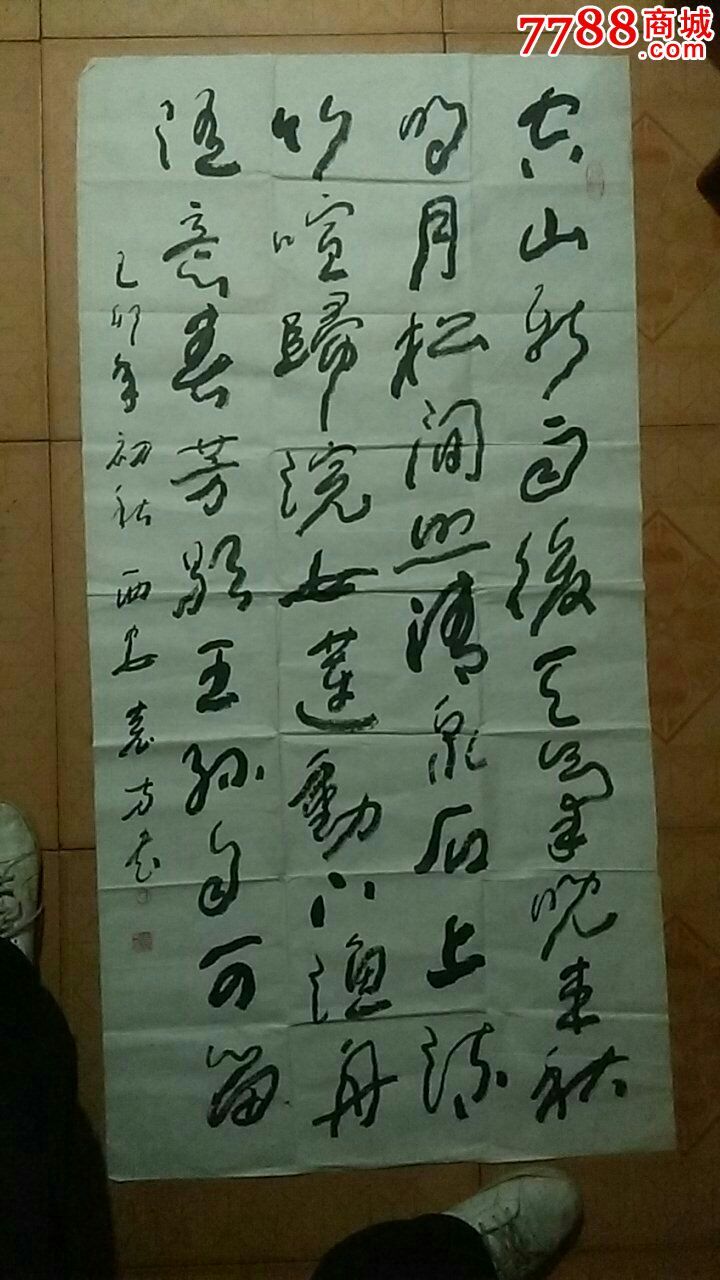 空山新雨後天氣晚来秋
明月松間照清泉石上流
竹喧歸浣女蓮動下漁舟
随意春芳歇王孫自可留
己卯年初秋西安袁方书
7788商城
.com